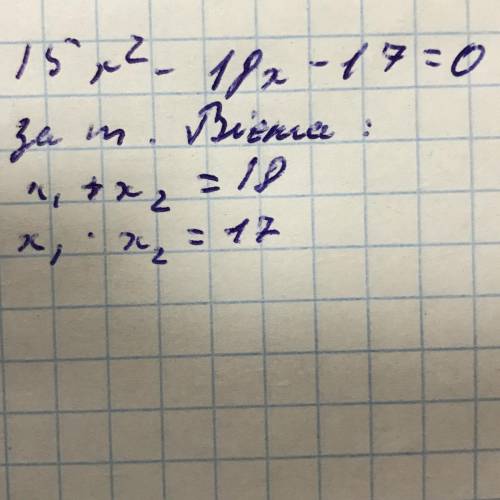 15x² - 18x - 17 = 0
за т. Вієта:
x₁ + x₂ = 18
x₁ · x₂ = 17